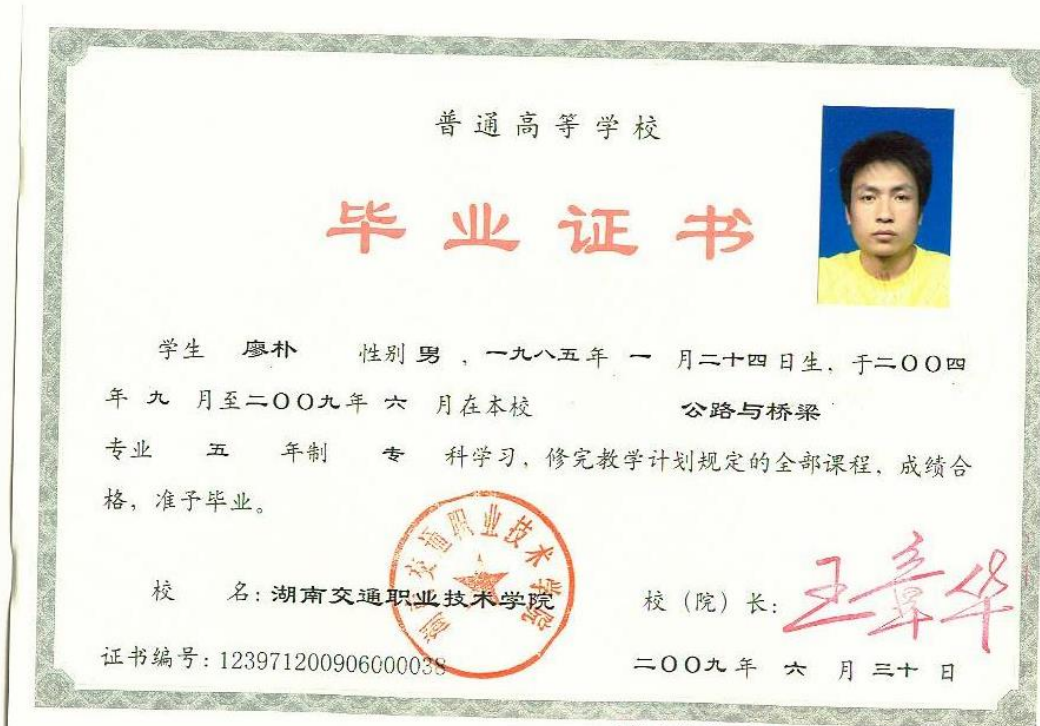 普通高等学校
毕业证书
学生 廖朴 性别 男 ，一九八五年 一 月二十四日生，于二〇〇四
年 九 月至二〇〇九年 六 月在本校 公路与桥梁
专业 五 年制 专 科学习，修完教学计划规定的全部课程，成绩合
格，准予毕业。
湖南交通职业技术学院
校 名：湖南交通职业技术学院 校（院）长：王章华
证书编号：123971200906000038 二〇〇九年 六 月 三十 日